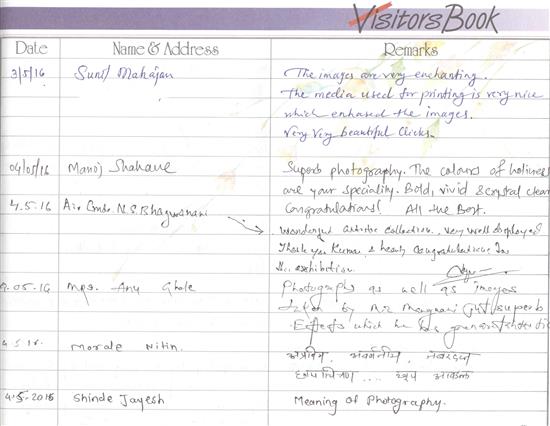 Visitors Book
Date Name & Address Remarks
3/5/16 Sunil Mahajan The images are very enchanting.
The media used for printing is very nice
which enhased the images.
Very Very beautiful Clicks.
04/05/16 Manoj Shahane Superb photography. The colours of holiness
are your speciality. Bold, vivid & crystal clear
4.5.16 Air Cmde. N.S. Congratulations! All the Best.
Wonderful artistic collection. Very well displayed
Thank you Kumar & hearty congratulations for
exhibition.
.05.16 Mrs. Anu Photographs as well as images
taken by Mr. Mangwani superb
Effects which he has
Morde Nitin. अप्रतिम, अवर्णनीय,
छायाचित्रण .... खूप
4.5.2016 Shinde Jayesh Meaning of Photography.